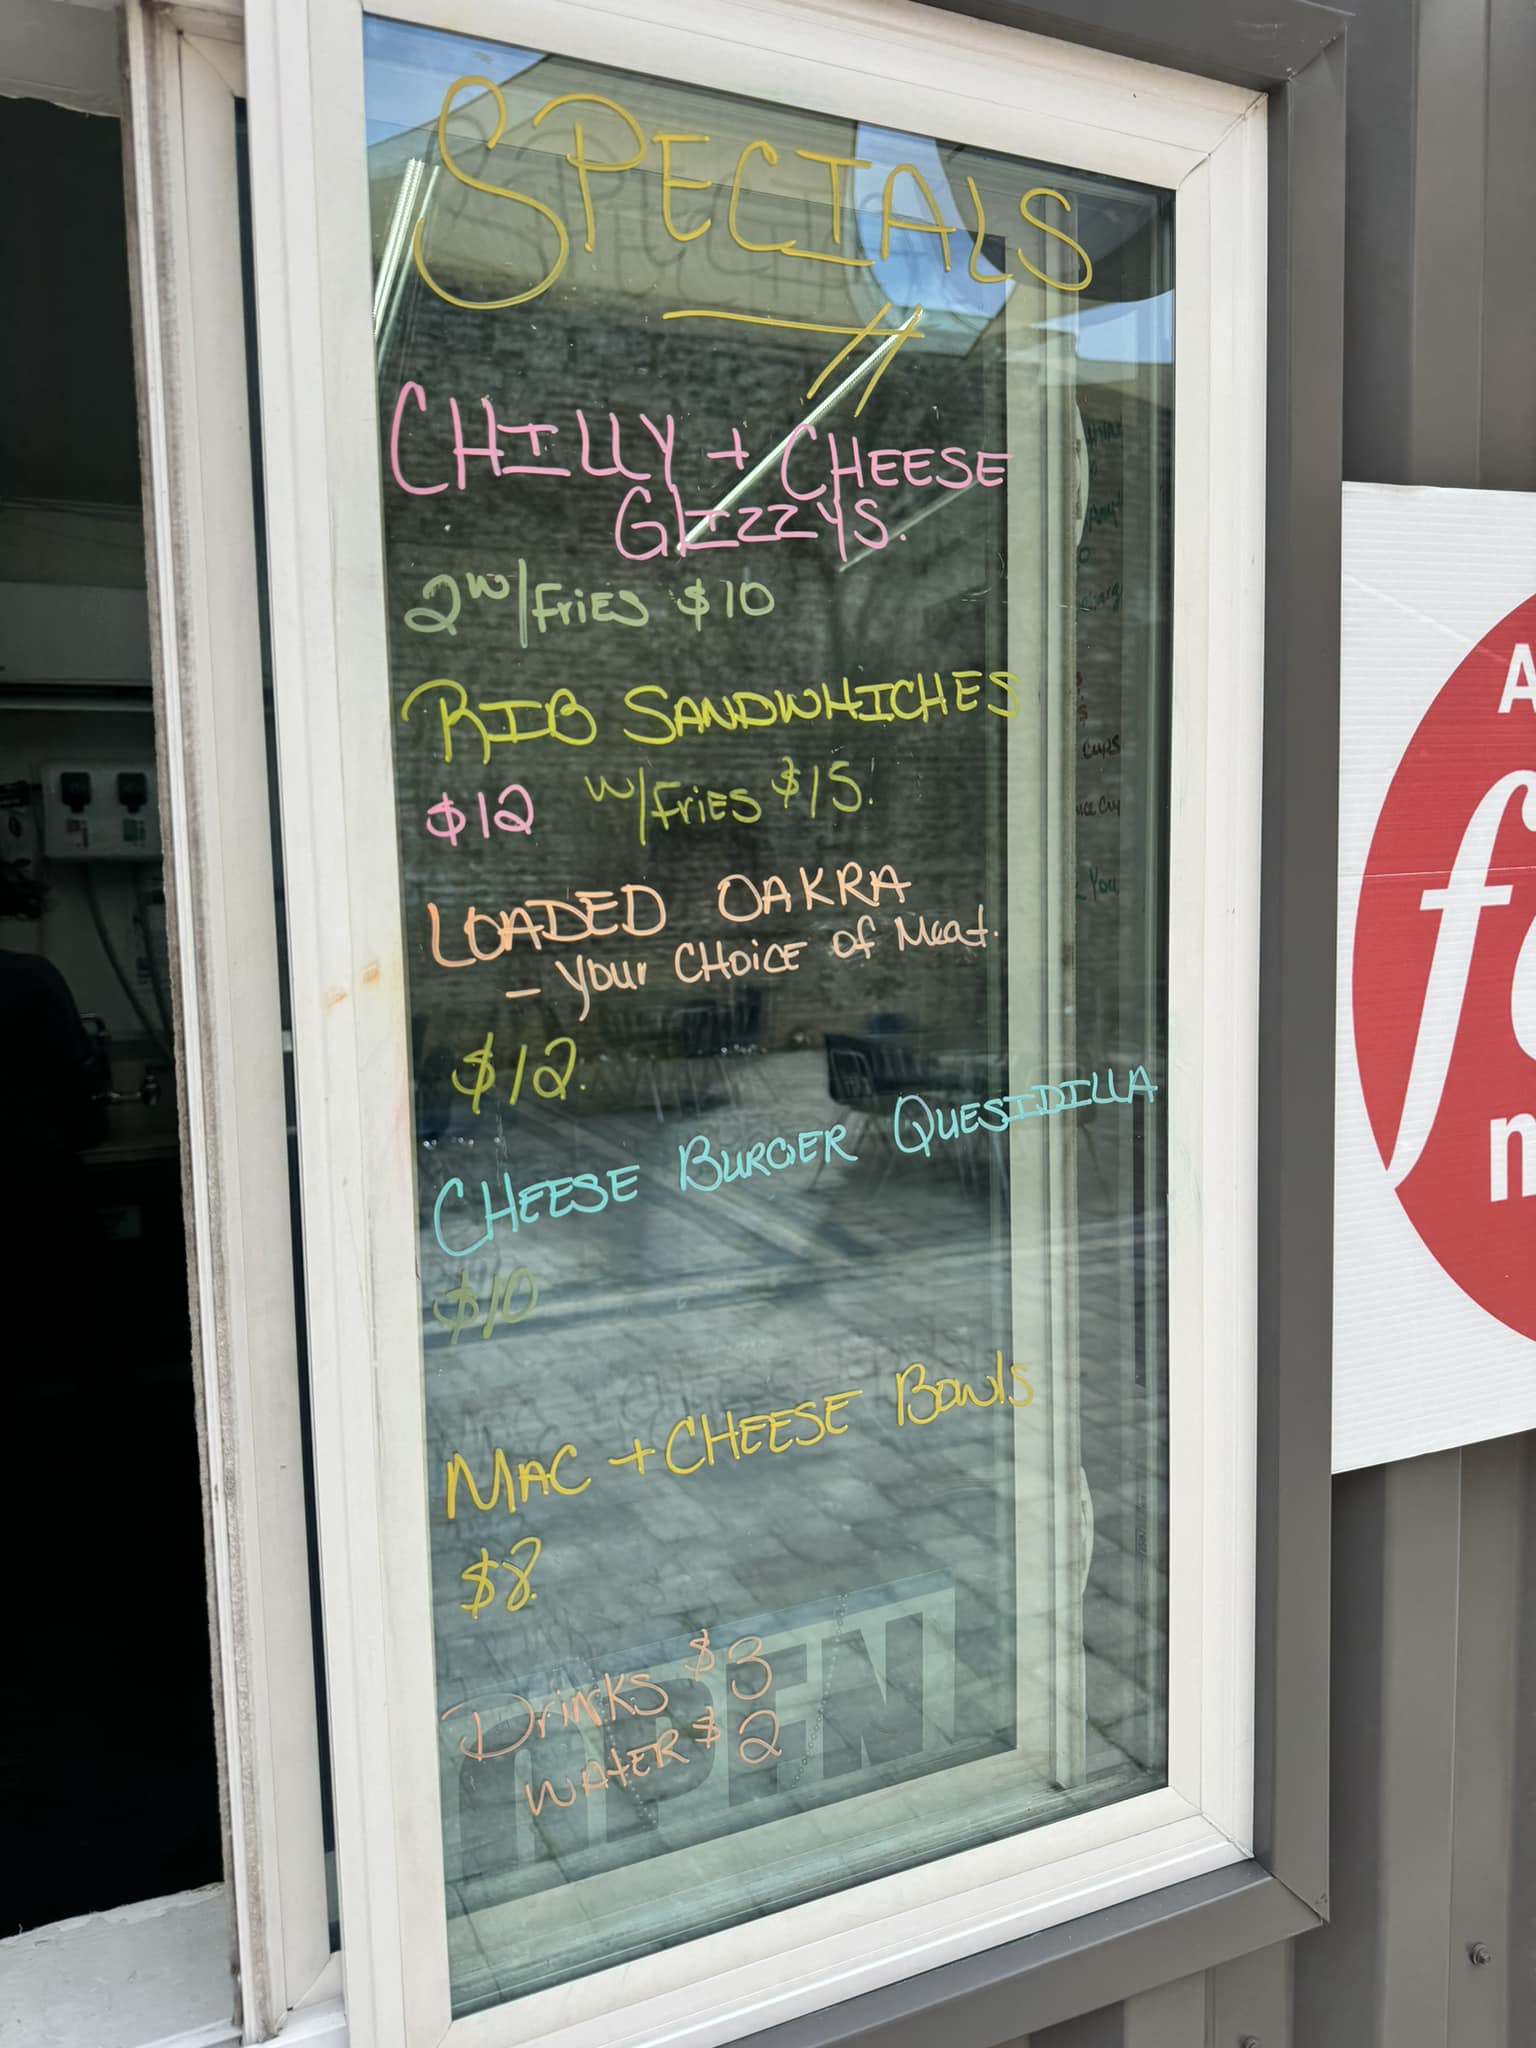 SPECIALS
CHILLY + CHEESE
GLIZZYS.
2 w/Fries $10
RIB SANDWHICHES
$12 w/Fries $15.
LOADED OAKRA
- Your CHOICE of Meat.
$12.
CHEESE BURGER QUESIDILLA
$10
MAC + CHEESE BOWlS
$8.
Drinks $3
WATER $2
OPEN
Cups
You
A
f